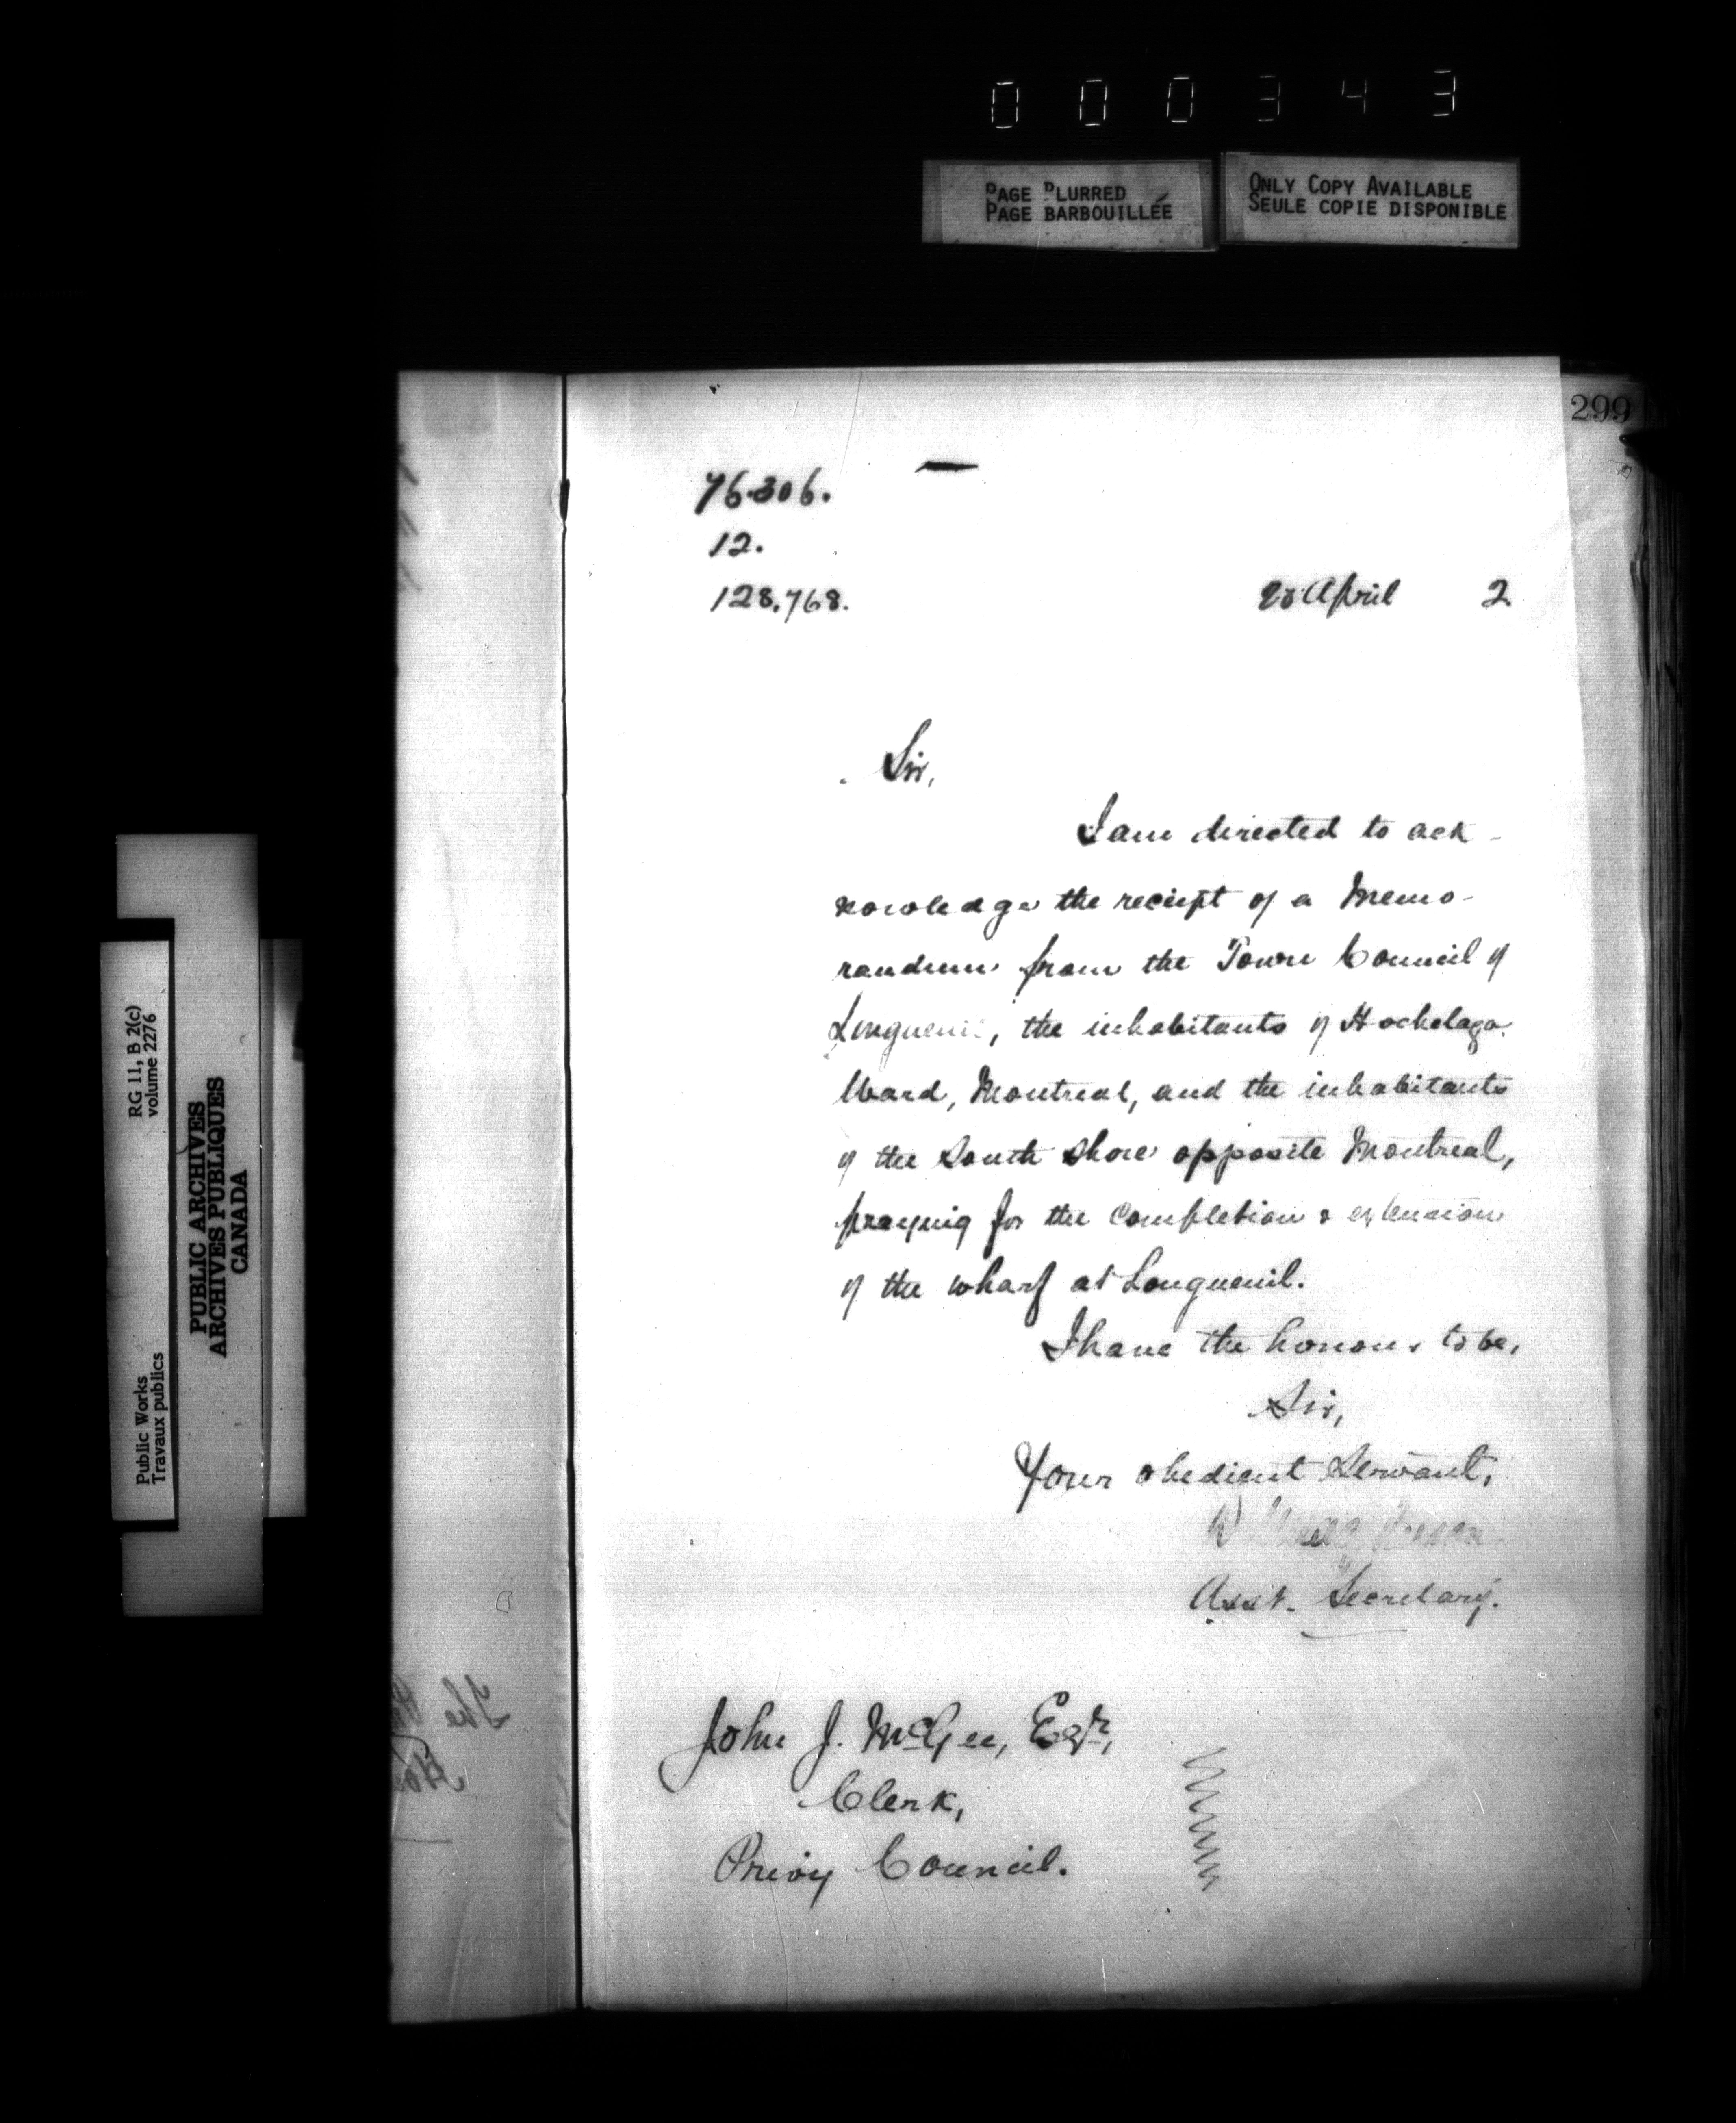 000343
PAGE BLURRED
PAGE BARBOUILLÉE
ONLY COPY AVAILABLE
SEULE COPIE DISPONIBLE
299
76.306.
12.
128.768.
April 2
Sir,
I am directed to ack-
nowledge the receipt of a Memo-
randum from the Town Council of
Longueuil, the inhabitants of Hochelaga
Ward, Montreal, and the inhabitants
of the South Shore opposite Montreal,
praying for the completion & extension
of the wharf at Longueuil.
I have the honour to be,
Sir,
Your obedient Servant,
Asst. Secretary.
John J. McGee, Esqr,
Clerk,
Privy Council.
RG 11, B 2(c)
volume 2276
Public Works
Travaux publics
PUBLIC ARCHIVES
ARCHIVES PUBLIQUES
CANADA